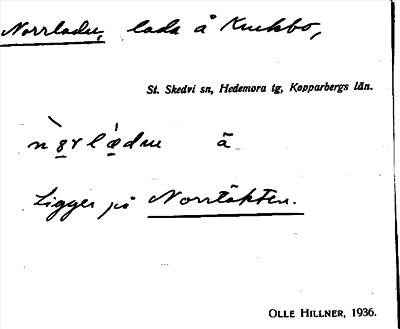 Norrladu, lada å Kuckbo,
St. Skedvi sn, Hedemora tg, Kopparbergs län.
ǹo̱rlǽ̱du ã
Ligger på Norrtäkten.
OLLE HILLNER, 1936.